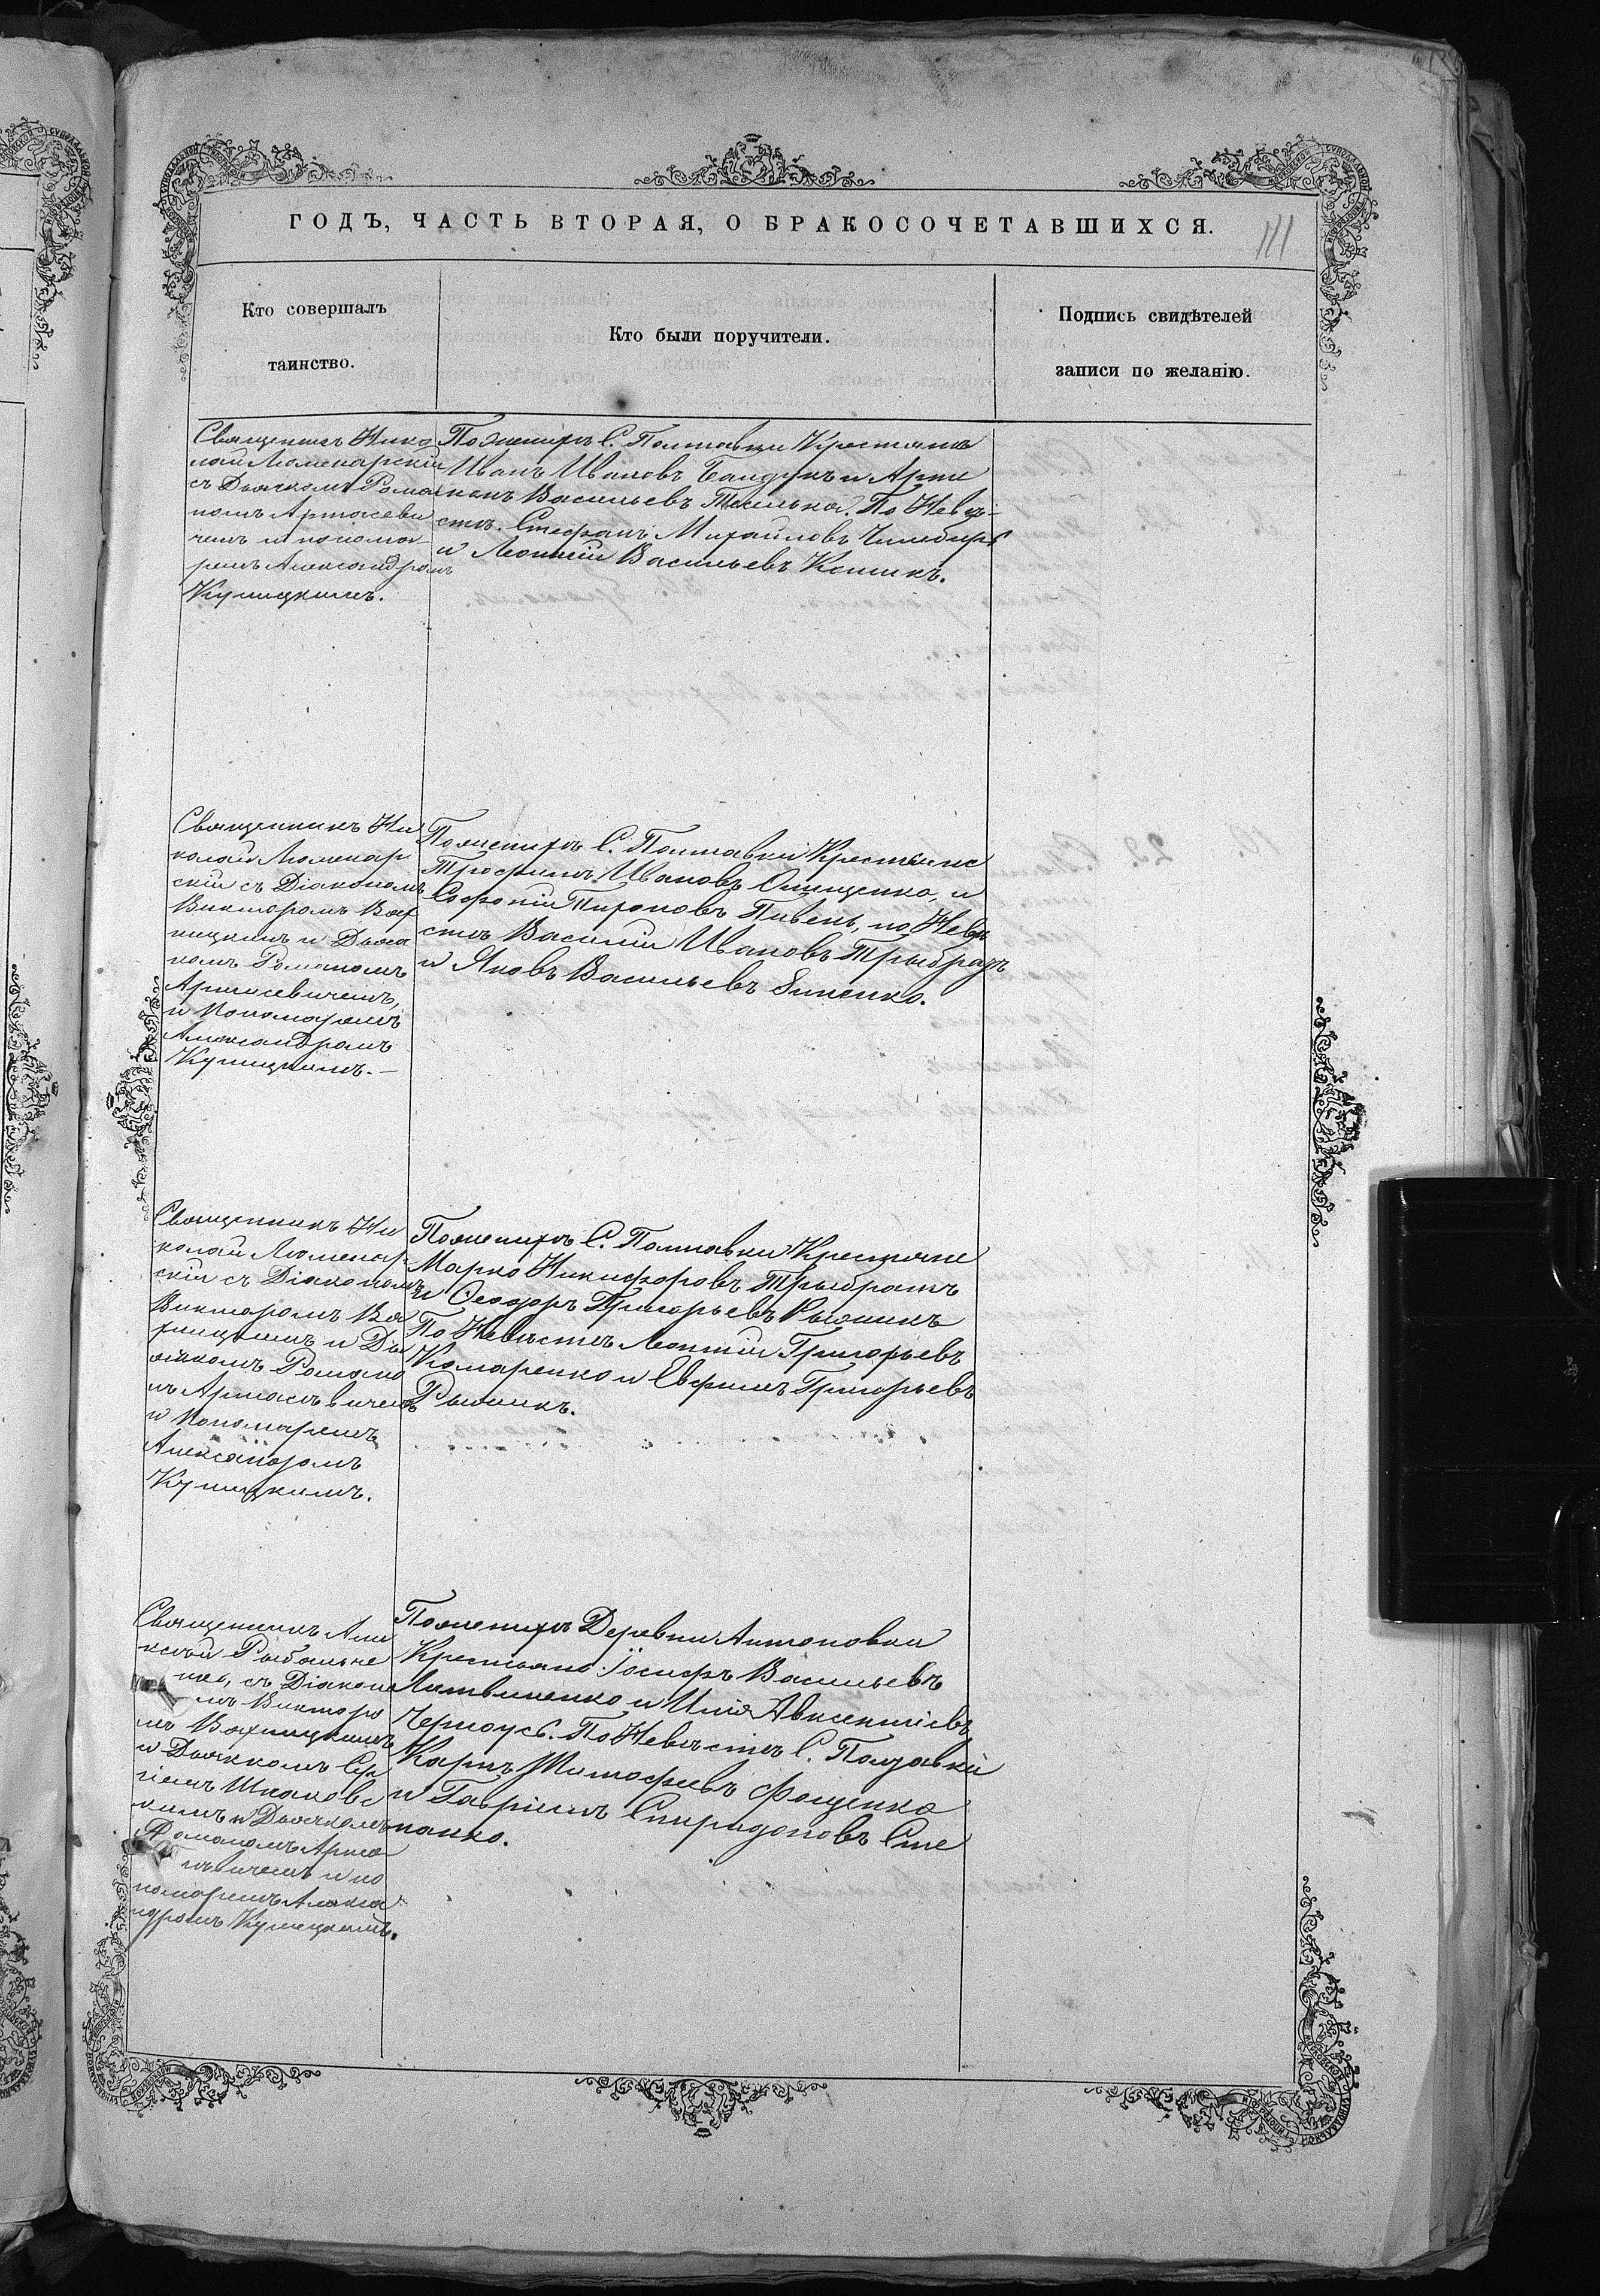 ГОДЪ, ЧАСТЬ ВТОРАЯ, О БРАКОСОЧЕТАВШИХСЯ.
111
Кто совершалъ
таинство.
Кто были поручители.
Подпись свидѣтелей
записи по желанію.
Священникъ Нико
лай Люменарскій
съ Дьячкомъ Рома
номъ Артасеви
чемъ и понома-
ремъ Александромъ
Купицкимъ.
По Жениху С. Полтавки Крестьяне
Иванъ Ивановъ и Арти
монъ Васильевъ По Невѣ-
стѣ. Стефанъ Михайловъ
и Леонтій Васильевъ
Священникъ Ни
колай Люменар
скій съ Діакономъ
Викторомъ Вах
ницкимъ и Дьяч
комъ Романомъ
Артасевичемъ,
и Пономаремъ
Александромъ
Купицкимъ.—
По жениху С. Полтавки Крестьяне
Трофимъ Ивановъ Онищенко, и
Софроній Пивень, по Невѣ
стѣ Василій Ивановъ Трыбратъ
и Яковъ Васильевъ
Священникъ Ни
колай Люменар
скій съ Діакономъ
Викторомъ Ва
хницкимъ и Дь
ячкомъ Романо
мъ Артасѣвичемъ
и Пономаремъ
Александромъ
Купицкимъ.
По жениху С. Полтавки Крестьяне
Марко Никифоровъ Трыбратъ
и Феодоръ Григорьевъ
По Невѣстѣ Леонтій Григорьевъ
Комаренко и Евфимъ Григорьевъ
Священникъ Але
ксѣй Рыбальче
нко, съ Діаконо
мъ Викторо
мъ Вахницкимъ
и Дьячкомъ Сер
гіемъ Шпаковс
кимъ и Дьячкомъ
Романомъ Арта
и по
номаремъ Алекса
ндромъ Купицкимъ.
По жениху Деревни Антоновки
Крестьяне Іосифъ Васильевъ
Литвиненко и Илія Авксентіевъ
Черноусъ. По Невѣстѣ С. Полтавки
Карпъ Тимофеевъ Фещенко
и Гавріилъ Спиридоновъ Сте
панко.